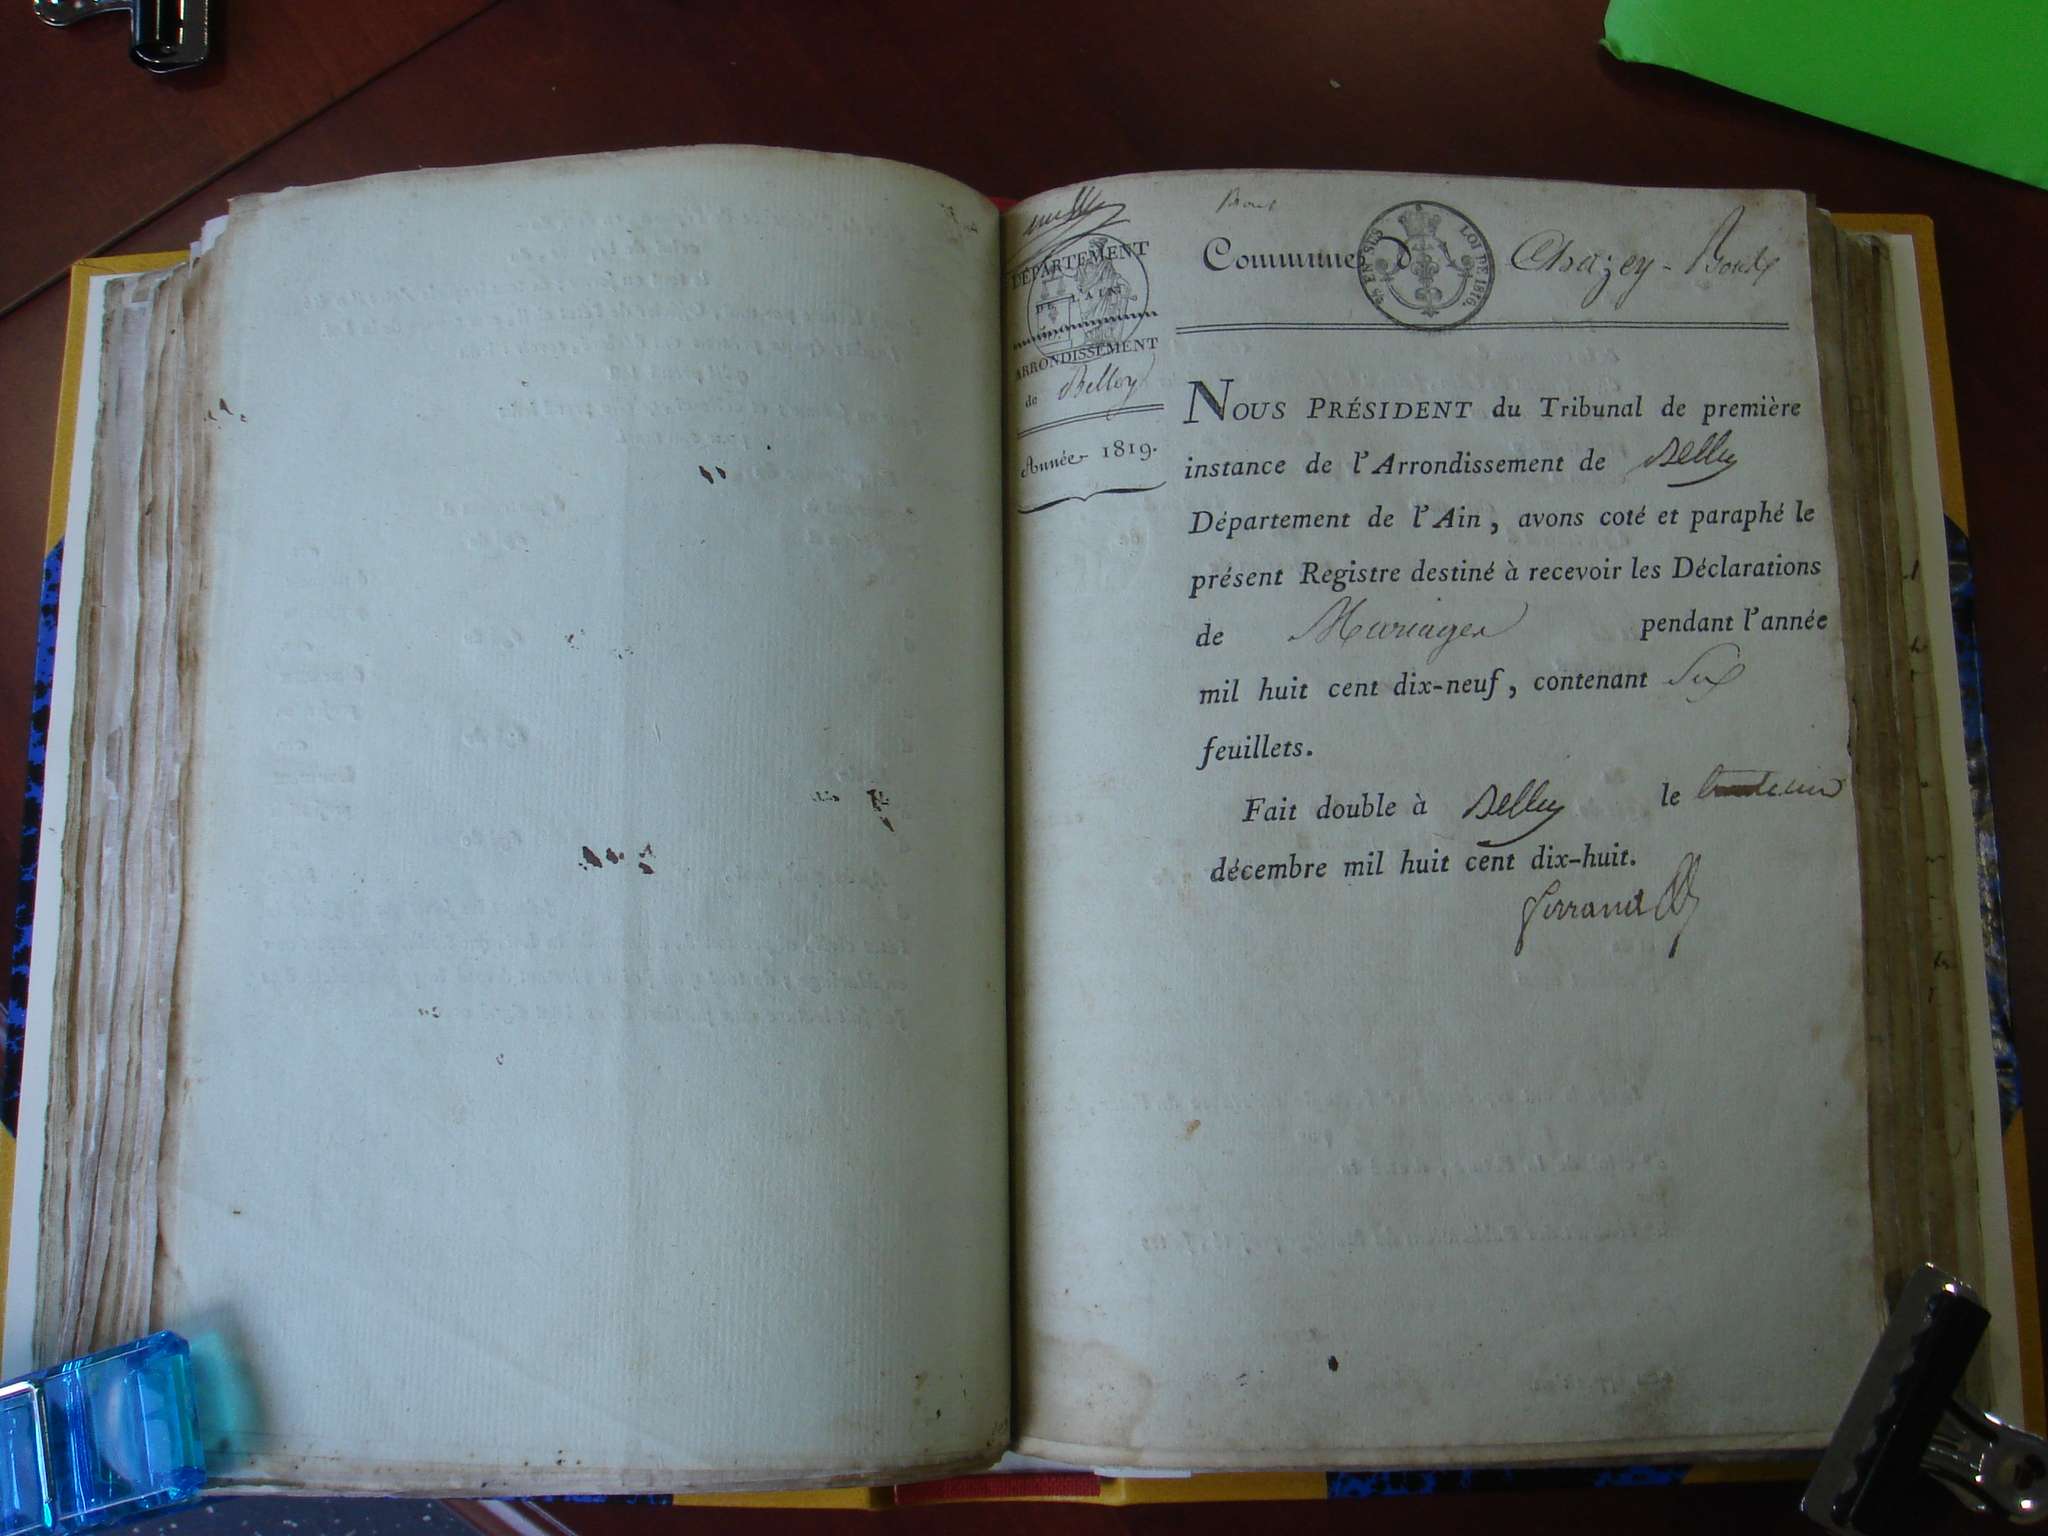 Commune d Chazey-Bons
LOI DE 1816.
DÉPARTEMENT
DE L'AIN
ARRONDISSEMENT
de Belley
Année 1819.
NOUS PRÉSIDENT du Tribunal de première
instance de l'Arrondissement de Belley
Département de l'Ain, avons coté et paraphé le
présent Registre destiné à recevoir les Déclarations
de Mariages pendant l'année
mil huit cent dix-neuf, contenant Six
feuillets.
Fait double à Belley le
décembre mil huit cent dix-huit.